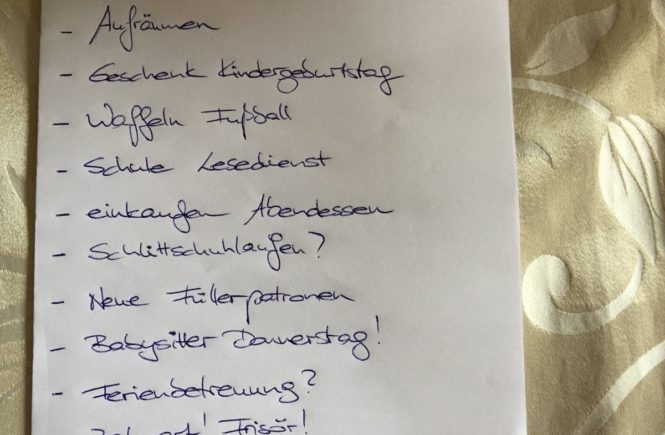 - Aufräumen
- Geschenk Kindergeburtstag
- Waffeln Fußball
- Schule Lesedienst
- einkaufen Abendessen
- Schlittschuhlaufen?
- Neue Füllerpatronen
- Babysitter Donnerstag!
- Ferienbetreuung?
Frisör!